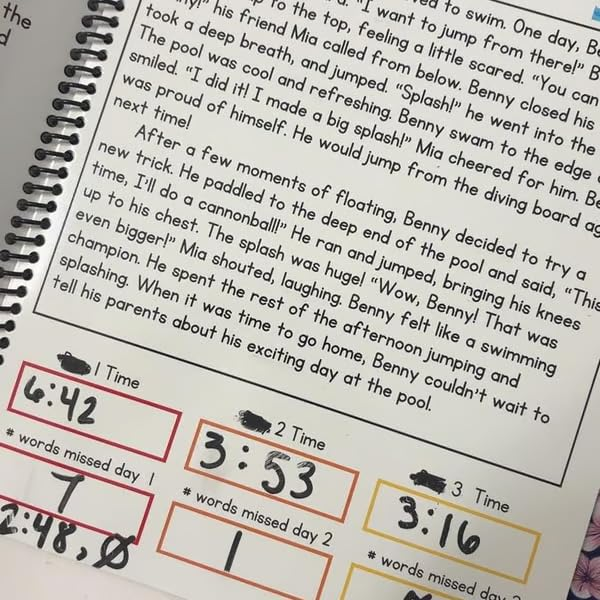 the
d
ved to swim. One day, Be
"I want to jump from there!" B
to the top, feeling a little scared. "You can
his friend Mia called from below. Benny closed his
took a deep breath, and jumped. "Splash!" he went into the
The pool was cool and refreshing. Benny swam to the edge
smiled. "I did it! I made a big splash!" Mia cheered for him. Be
was proud of himself. He would jump from the diving board ag
next time!
After a few moments of floating, Benny decided to try a
new trick. He paddled to the deep end of the pool and said, "This
time, I'll do a cannonball!" He ran and jumped, bringing his knees
up to his chest. The splash was huge! "Wow, Benny! That was
even bigger!" Mia shouted, laughing. Benny felt like a swimming
champion. He spent the rest of the afternoon jumping and
splashing. When it was time to go home, Benny couldn't wait to
tell his parents about his exciting day at the pool.
1 Time
6:42
# words missed day 1
7
2:48, Ø
2 Time
3:53
# words missed day 2
1
3 Time
3:16
# words missed day